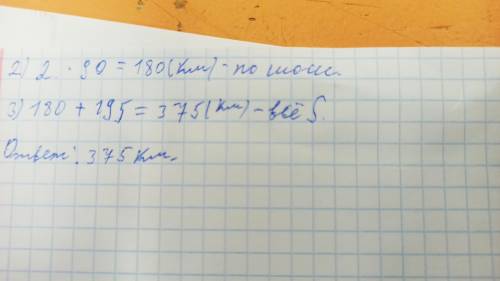 2) 2 · 90 = 180 (км) - по шосс.
3) 180 + 195 = 375 (км) - всё S.
Ответ: 375 км.